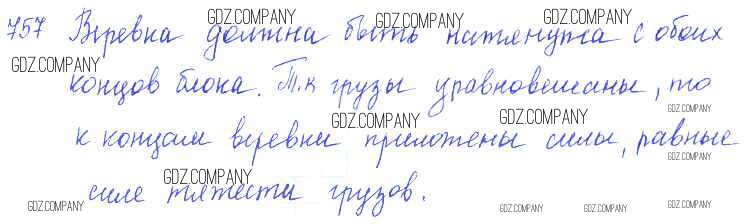 757 Веревка должна быть натянута с обоих
концов блока. Т.к грузы уравновешаны, то
к концам веревки приложены силы, равные
силе тяжести грузов.
GDZ.COMPANY
GDZ.COMPANY
GDZ.COMPANY
GDZ.COMPANY
GDZ.COMPANY
GDZ.COMPANY
GDZ.COMPANY
GDZ.COMPANY
GDZ.COMPANY
GDZ.COMPANY
GDZ.COMPANY
GDZ.COMPANY
GDZ.COMPANY